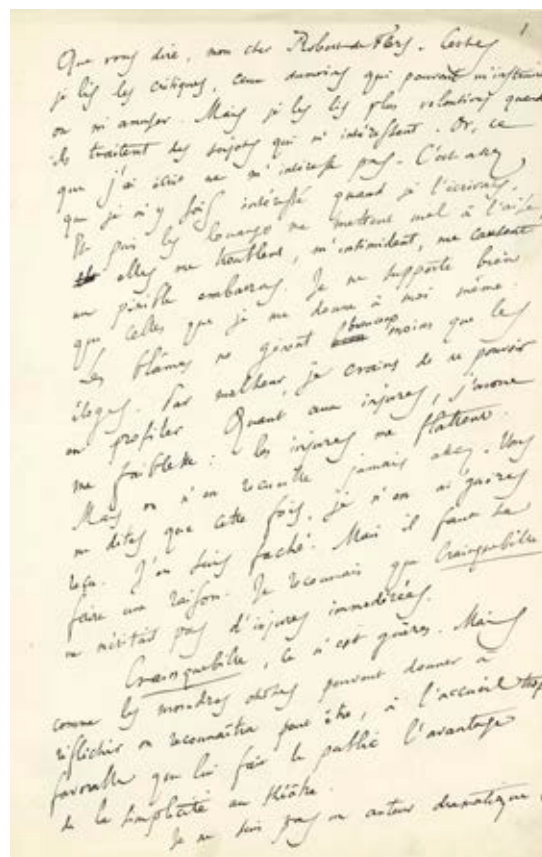 1
Que vous dire, mon cher Robert de Flers. Certes
je lis les critiques, ceux du moins qui peuvent m'instruire
ou m'amuser. Mais je les lis plus volontiers quand
ils traitent des sujets qui m'intéressent. Or, ce
que j'ai écrit ne m'intéresse pas. C'est assez
que je m'y sois intéressé quand je l'écrivais.
Et puis les louanges me mettent mal à l'aise,
elles me troublent, m'intimident, me causent
un pénible embarras. Je ne supporte bien
que celles que je me donne à moi même.
Les blâmes me gênent beaucoup moins que les
éloges. Par malheur, je crains de ne pouvoir
en profiter. Quant aux injures, j'avoue
ma faiblesse : les injures me flattent.
Mais on n'en recueille jamais assez. Vous
me dites que cette fois, je n'en ai guères
reçu. J'en suis fâché. Mais il faut se
faire une raison. Je reconnais que Crainquebille
ne méritait pas d'injures immodérées.
Crainquebille, ce n'est guères. Mais
comme les moindres choses peuvent donner à
réfléchir on reconnaîtra peut être, à l'accueil trop
favorable que lui fait le public l'avantage
de la simplicité au théâtre.
Je ne suis pas un auteur dramatique,